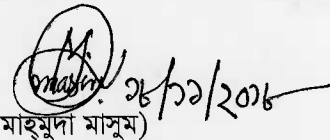 ১৮/১১/২০১৮
মাহ্‌মুদা মাসুম)